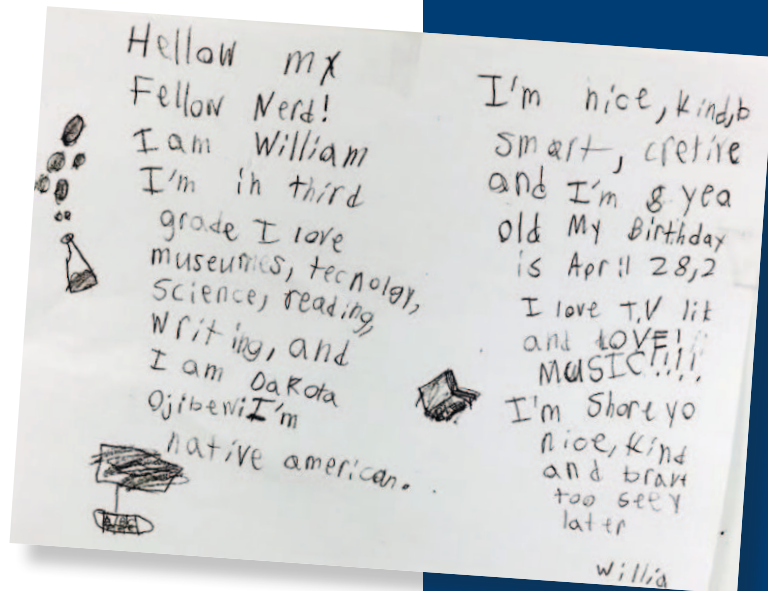 Hellow my
Fellow Nerd!
I am William
I'm in third
grade I love
museumes, tecnolgy,
science, reading,
writing, and
I am Dakota
Ojibewi I'm
native american.
I'm nice, kind, b
smart, cretive
and I'm 8 yea
old My Birthday
is April 28, 2
I love T.V lik
and LOVE!
MUSIC!!!!
I'm Shore yo
nice, kind
and brav
too see y
later
Willia